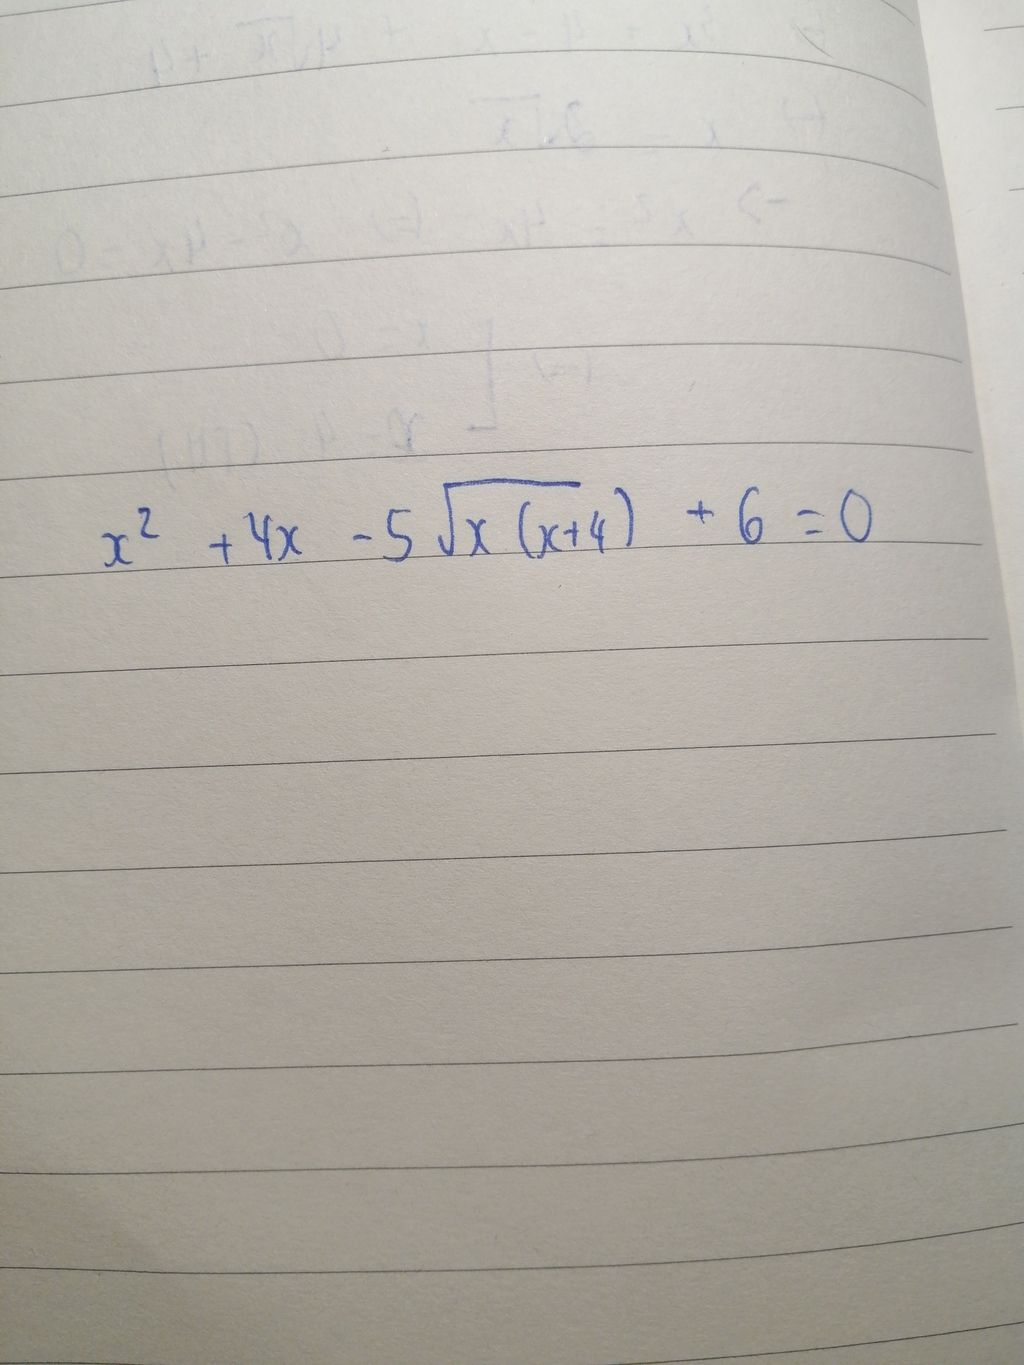 x² + 4x - 5√x(x+4) + 6 = 0